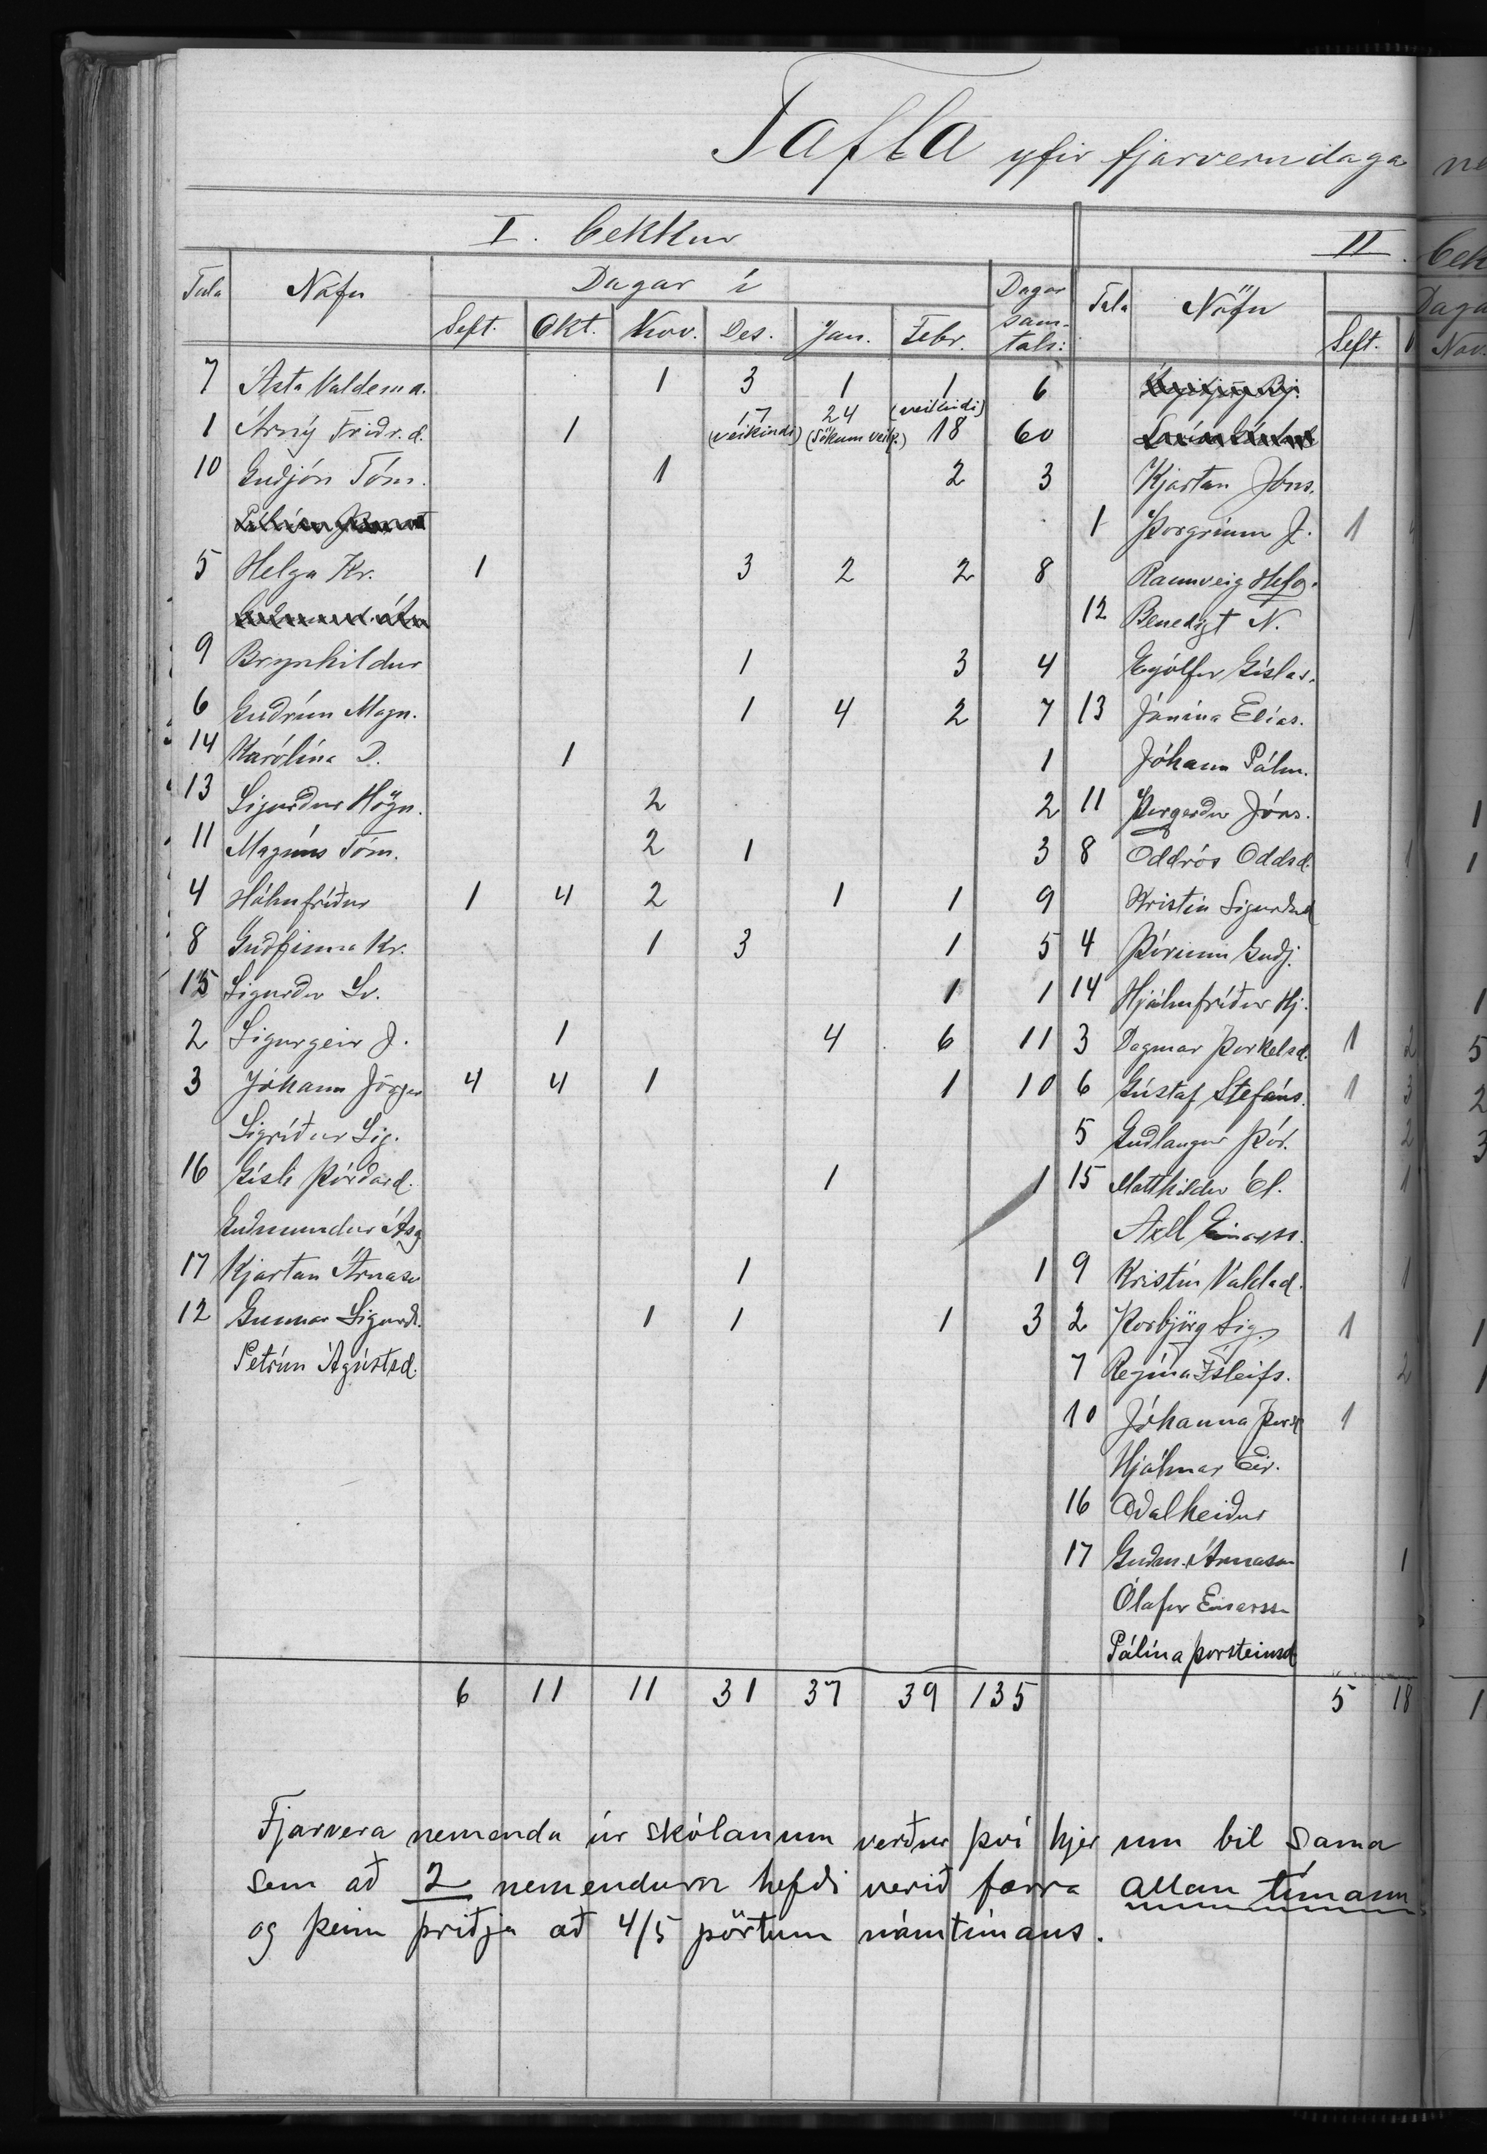 Tafla yfir fjarverudaga ne
I. bekkur
II. bek
Tala Nöfn Dagar í Dagar sam- tals: Tala Nöfn Daga
Sept. Okt. Nóv. Des. Jan. Febr. Sept. Nóv.
7 Ásta Valdema. 1 3 1 1 6
1 Árný Friðr.d. 1 17 (veikindi) 24 (sökum veik.) (veikindi) 18 60
10 Guðjón Tóm. 1 2 3 Kjartan Jóns.
1 Þorgrímur J. 1
5 Helga Kr. 1 3 2 2 8 Rannveig Helg.
12 Benedigt N.
9 Brynhildur 1 3 4 Eyjólfur Gíslas.
6 Guðrún Magn. 1 4 2 7 13 Jónína Elías.
14 Karólína D. 1 1 Jóhann Pálm.
13 Sigurður Högn. 2 2 11 Þorgerður Jóns. 1
11 Magnús Tóm. 2 1 3 8 Oddrós Oddsd. 1 1
4 Hólmfríður 1 4 2 1 1 9 Kristín Sigurðard
8 Guðfinna Kr. 1 3 1 5 4 Þórunn Guðj.
15 Sigurður Sv. 1 1 14 Hjálmfríður Hj. 1
2 Sigurgeir J. 1 4 6 11 3 Dagmar Þorkelsd. 1 2 5
3 Jóhann Jörgen 4 4 1 1 10 6 Gústaf Stefáns. 1 3 2
Sigríður Sig. 5 Guðlaugur Þór. 2 3
16 Gísli Þórðard. 1 1 15 Matthildur Ól. 1
Guðmundur Ásg Axel Einarss.
17 Kjartan Árnas 1 1 9 Kristín Valdad. 1
12 Gunnar Sigurð. 1 1 1 3 2 Þorbjörg Sig. 1 1
Petrún Ágústsd. 7 Regína Ísleifs. 2 1
10 Jóhanna Þorst 1
Hjálmar Eir.
16 Aðalheiður
17 Guðm. Árnason 1
Ólafur Einarss
Pálína Þorsteinsd
6 11 11 31 37 39 135 5 18 1
Fjarvera nemenda úr skólanum verður því hjer um bil sama
sem að 2 nemendum hefði verið færra allan tímann
og þeim þriðja að 4/5 pörtum námtímans.